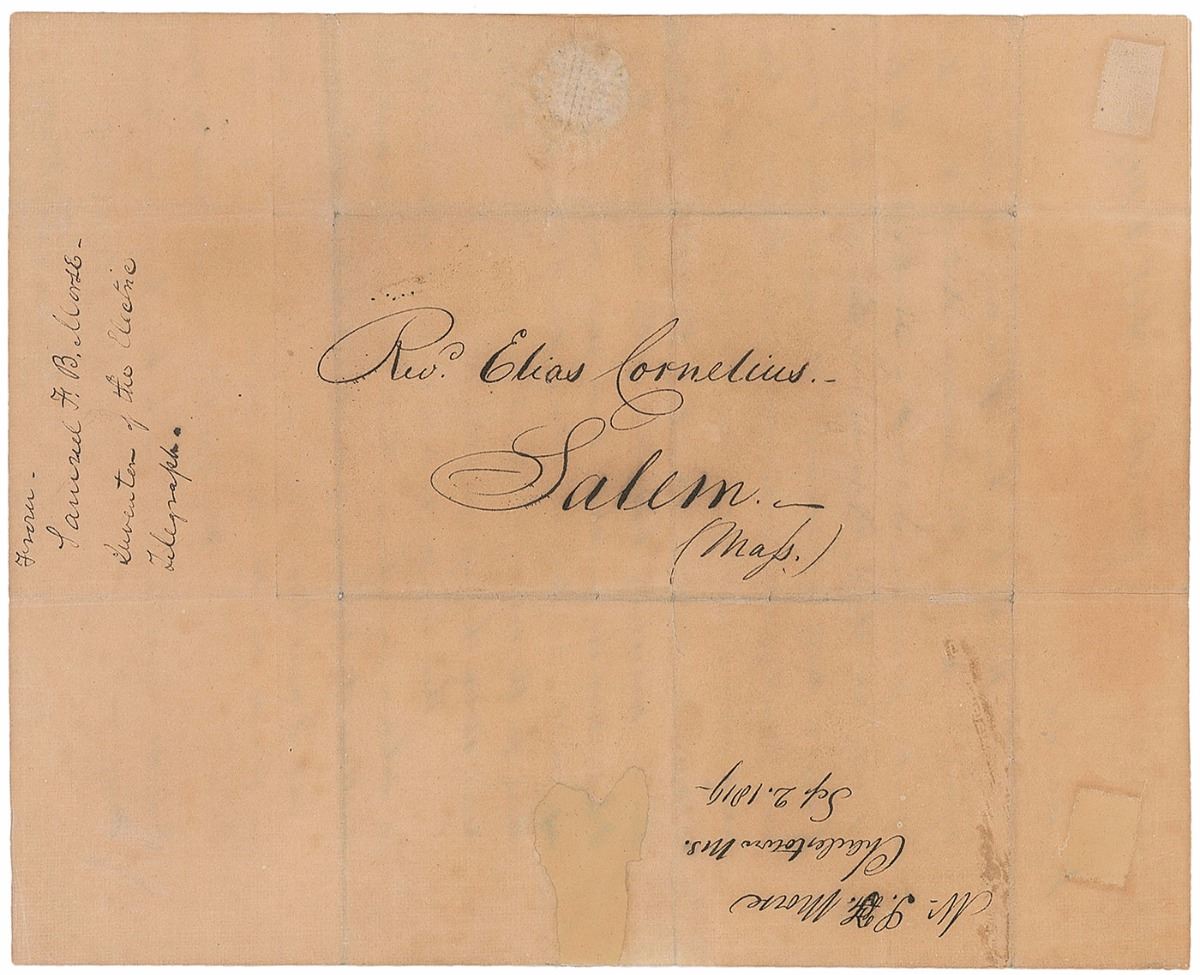 From -
Samuel F. B. Morse -
Inventor of the Electric
Telegraph.
Revd. Elias Cornelius. -
Salem. -
(Mass.)
Mr. S. F. Morse
Charlestown Ms.
Sep. 2. 1819 -